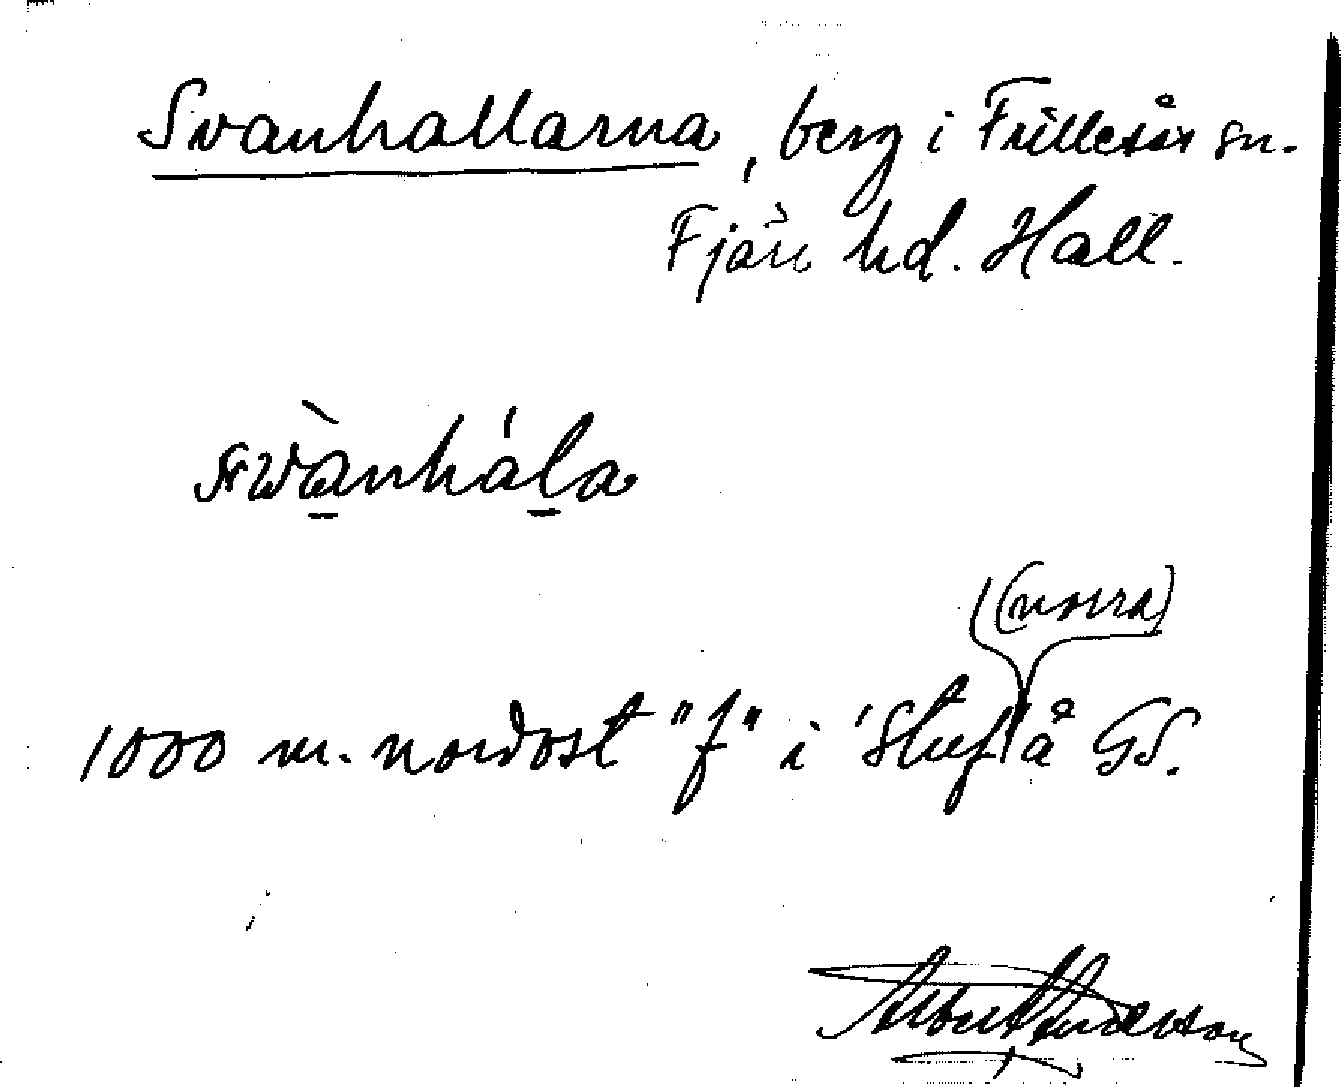 Svanhallarna, berg i Frillesås sn.
Fjäre hd. Hall.
swànhála
(norra)
1000 m. nordost "f" i Stuflå GS.
Albert Anderson